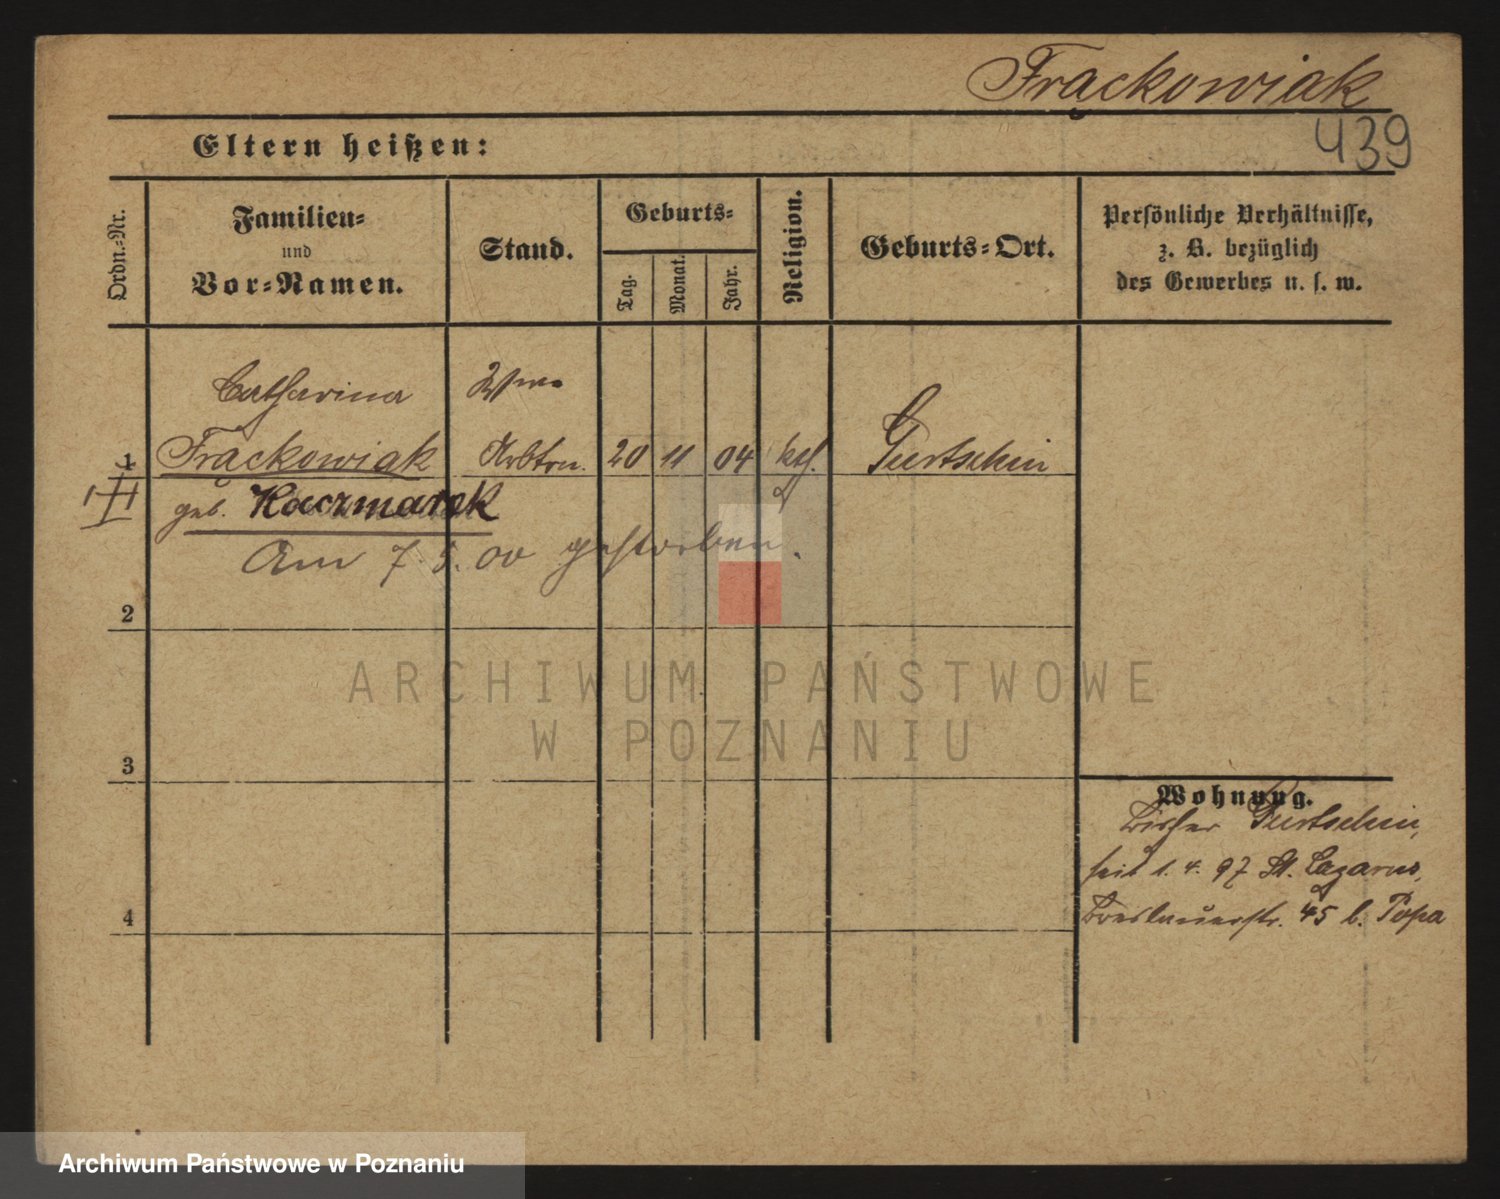 Frąckowiak
439
Eltern heißen:
Ordn.-Nr.
Familien-
und
Vor-Namen.
Stand.
Geburts-
Tag.
Monat.
Jahr.
Religion.
Geburts-Ort.
Persönliche Verhältnisse,
z. B. bezüglich
des Gewerbes u. s. w.
Catharina
Wwe
1
Frąckowiak
Arbtrn.
20
11
04
kth.
Gurtschin
geb. Kaczmarek
Am 7.5.00 gestorben.
2
3
4
Wohnung.
Bisher Gurtschin,
seit 1. 4. 97 St. Lazarus,
Breslauerstr. 45 b. Popa
ARCHIWUM PAŃSTWOWE
W POZNANIU
Archiwum Państwowe w Poznaniu